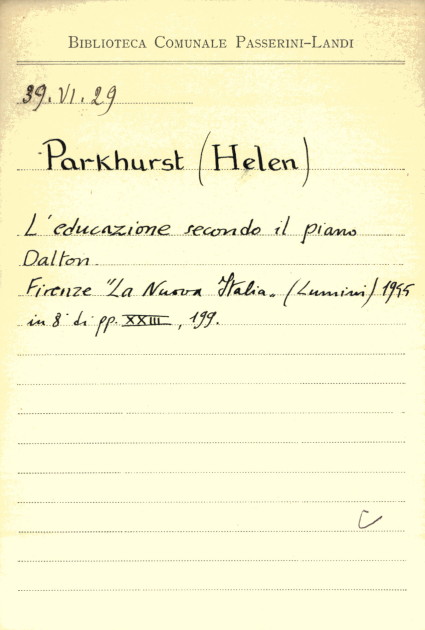 BIBLIOTECA COMUNALE PASSERINI-LANDI
39.VI.29
Parkhurst (Helen)
L'educazione secondo il piano
Dalton.
Firenze "La Nuova Italia" (Lumini) 1955
in 8° di pp. XXIII, 199.
C